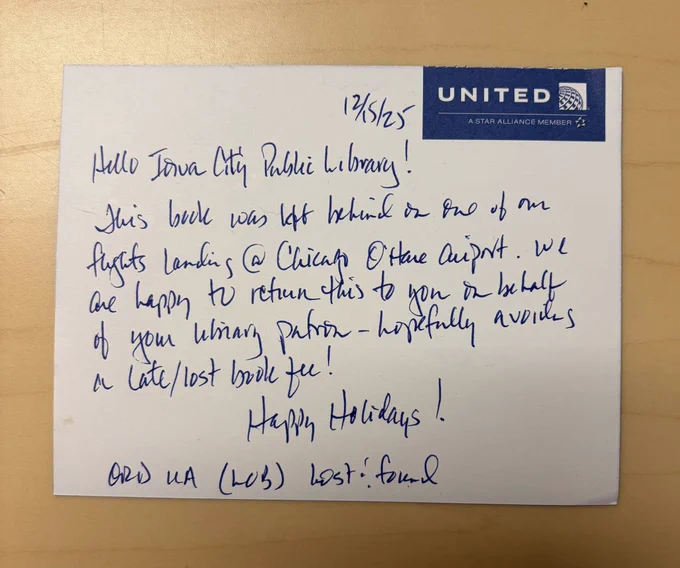 UNITED
A STAR ALLIANCE MEMBER
12/15/25
Hello Iowa City Public Library!
This book was left behind on one of our
flights landing @ Chicago O'Hare Airport. We
are happy to return this to you on behalf
of your library patron – hopefully avoiding
a late/lost book fee!
Happy Holidays!
ORD UA Lost & found